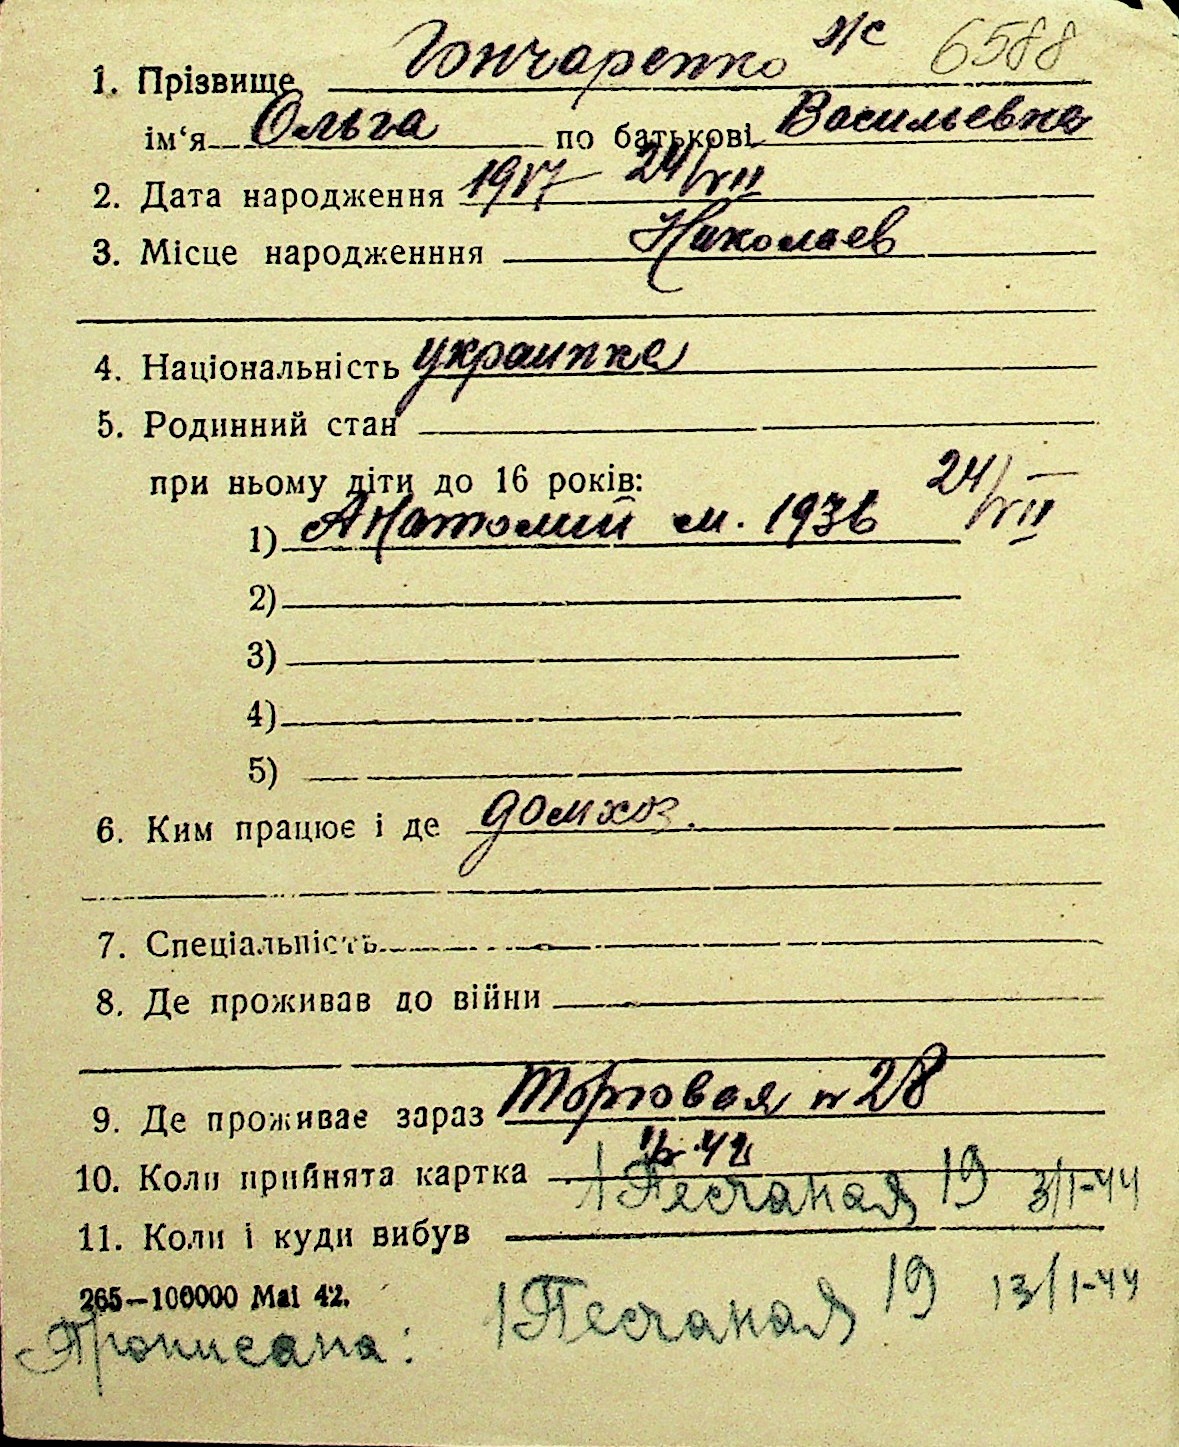 1. Прізвище Гончаренко 6588
ім‘я Ольга по батькові Васильевна
2. Дата народження 1917 24/VII
3. Місце народженння Николаев
4. Національність украинка
5. Родинний стан
при ньому діти до 16 років: 24/VII
1) Анатолий м. 1936
2)
3)
4)
5)
6. Ким працює і де домхоз.
7. Спеціальність
8. Де проживав до війни
9. Де проживає зараз Торговая № 28
10. Коли прийнята картка 42 1 Песчаная 19 3/I-44
11. Коли і куди вибув
265—100000 Mai 42.
Прописана: 1 Песчаная 19 13/I-44